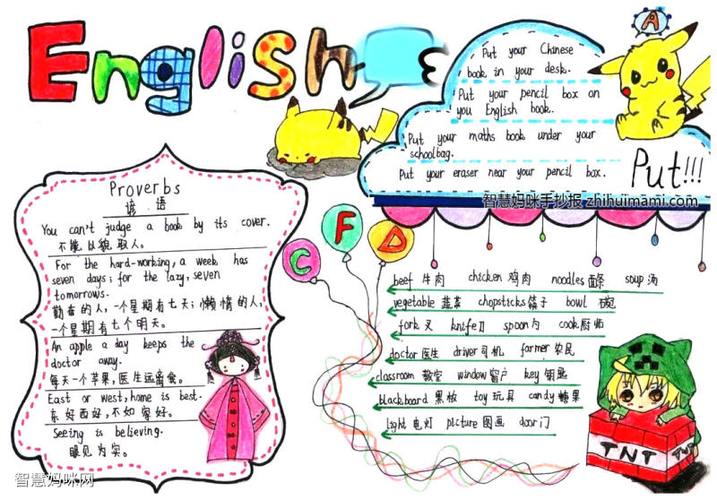 English
A
Put your Chinese
book in your desk.
Put your pencil box on
you English book.
Put your maths book under your
schoolbag.
Put your eraser near your pencil box.
Put!!!
智慧妈咪手抄报 zhihuimami.com
Proverbs
谚语
You can't judge a book by its cover.
不能以貌取人。
For the hard-working, a week has
seven days; for the lazy, seven
tomorrows.
勤奋的人,一个星期有七天;懒惰的人,
一个星期有七个明天。
An apple a day keeps the
doctor away.
每天一个苹果,医生远离我。
East or west, home is best.
东好西好,不如家好。
Seeing is believing.
眼见为实。
C F D
beef 牛肉 chicken 鸡肉 noodles 面条 soup 汤
vegetable 蔬菜 chopsticks 筷子 bowl 碗
fork 叉 knife 刀 spoon 勺 cook 厨师
doctor 医生 driver 司机 farmer 农民
classroom 教室 window 窗户 key 钥匙
blackboard 黑板 toy 玩具 candy 糖果
light 电灯 picture 图画 door 门
TNT
智慧妈咪网